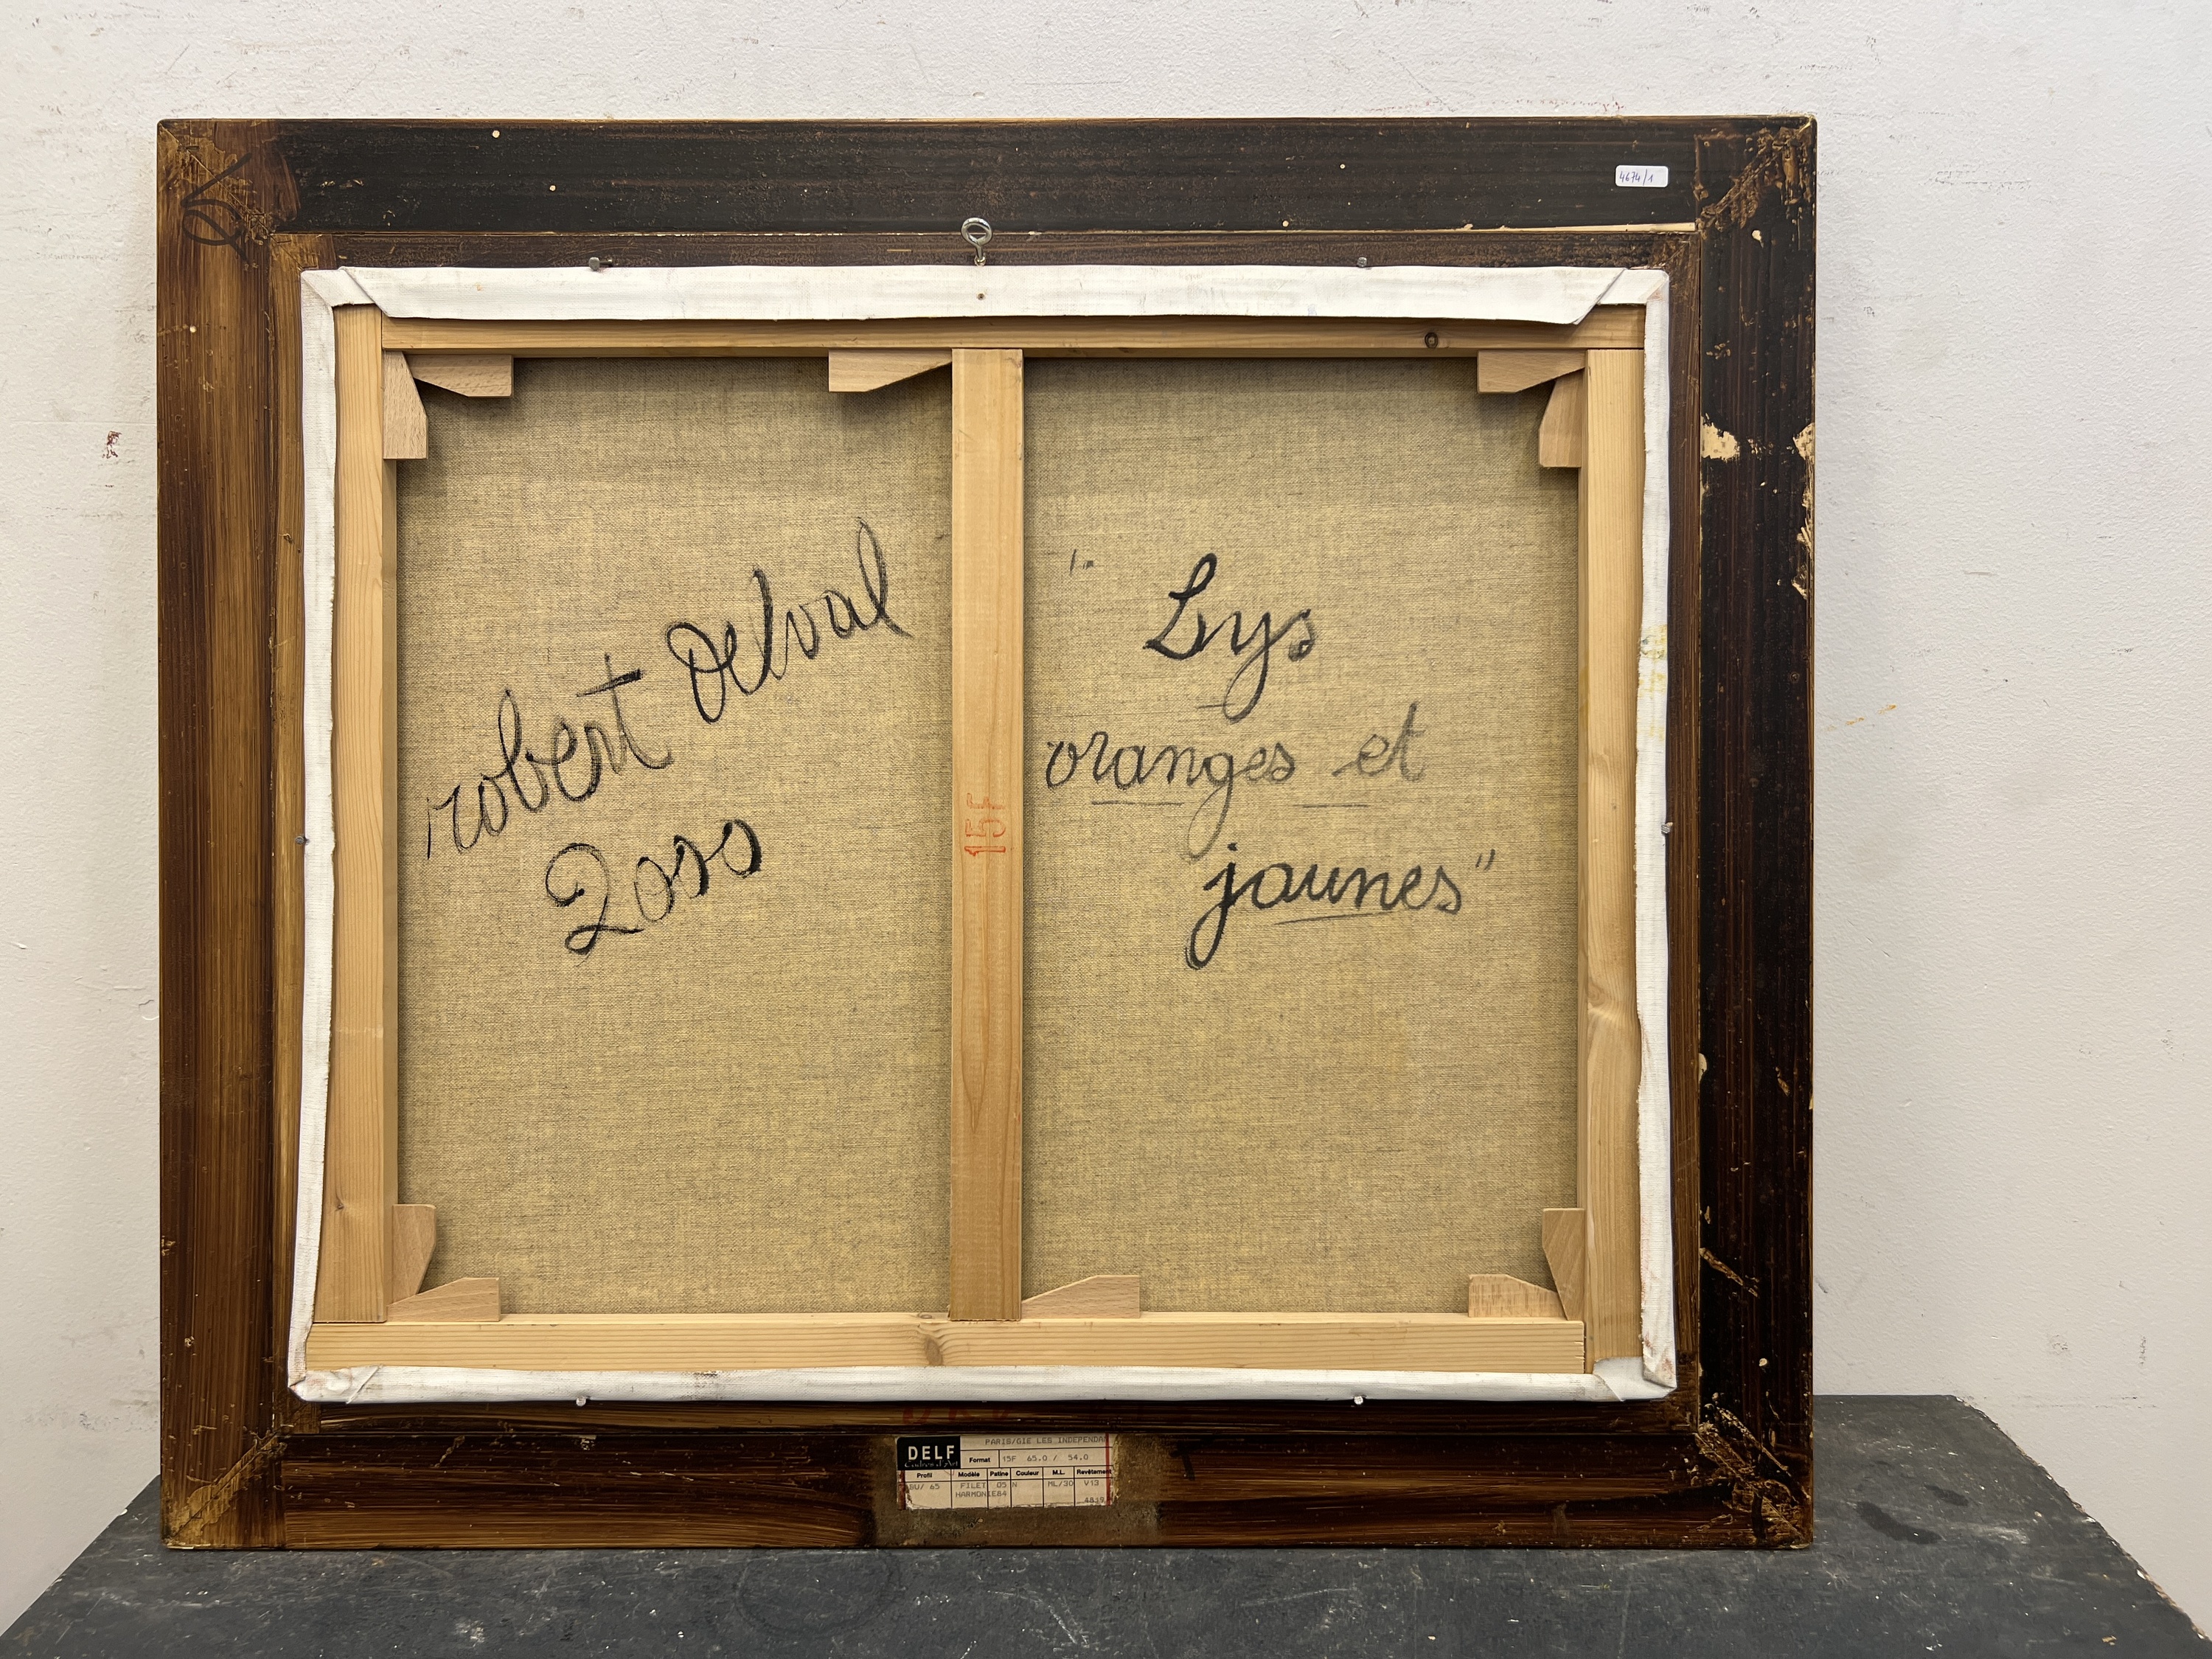 4674/1
robert Delval
2000
"Lys
oranges et
jaunes"
15F
DELF
PARIS/GIE LES INDEPENDA
Format 15F 65.0 / 54.0
Profil Modèle Patine Couleur M.L. Revêtement
BU/ 65 FILET 05 N ML/30 V13
HARMONIE84
4839